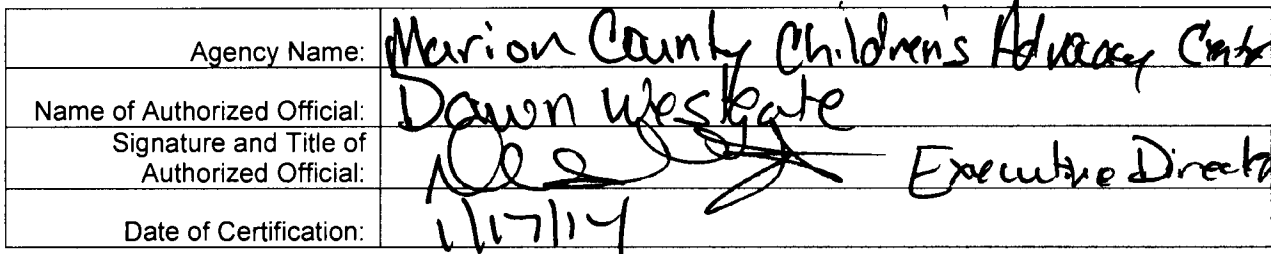 Agency Name: Marion County Children's Advocacy Center
Name of Authorized Official: Dawn Westgate
Signature and Title of
Authorized Official: Executive Director
Date of Certification: 1/17/14